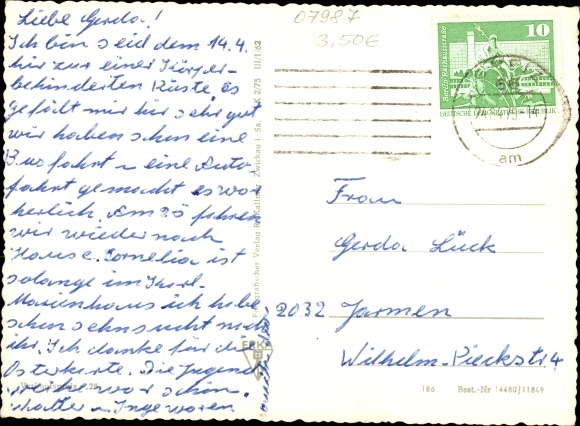 Liebe Gerda!
Ich bin seid dem 14.4.
hir zur einer Körper-
behinderten Rüste, es
gefält mir hir sehr gut
wir haben schon eine
Busfahrt u eine Auto-
fahrt gemacht es war
herlich. Am 25 fahren
wir wieder nach
Hause. Cornelia ist
solange im Karl-
Marienhaus ich habe
schon sehnsucht nach
ihr. Ich danke für die
Osterkarte. Die Jugend
war schön.
u Inge waren
07987
3,50€
Berlin, Rathausstraße
10
DEUTSCHE DEMOKRATISCHE REPUBLIK
am
Fotografischer Verlag R. Kallmer, Zwickau i. Sa. K 2/75 III/1/62
Frau
Gerda Lück
2032 Jarmen
Wilhelm-Pieckstr. 4
186 Best.-Nr 14480/11849